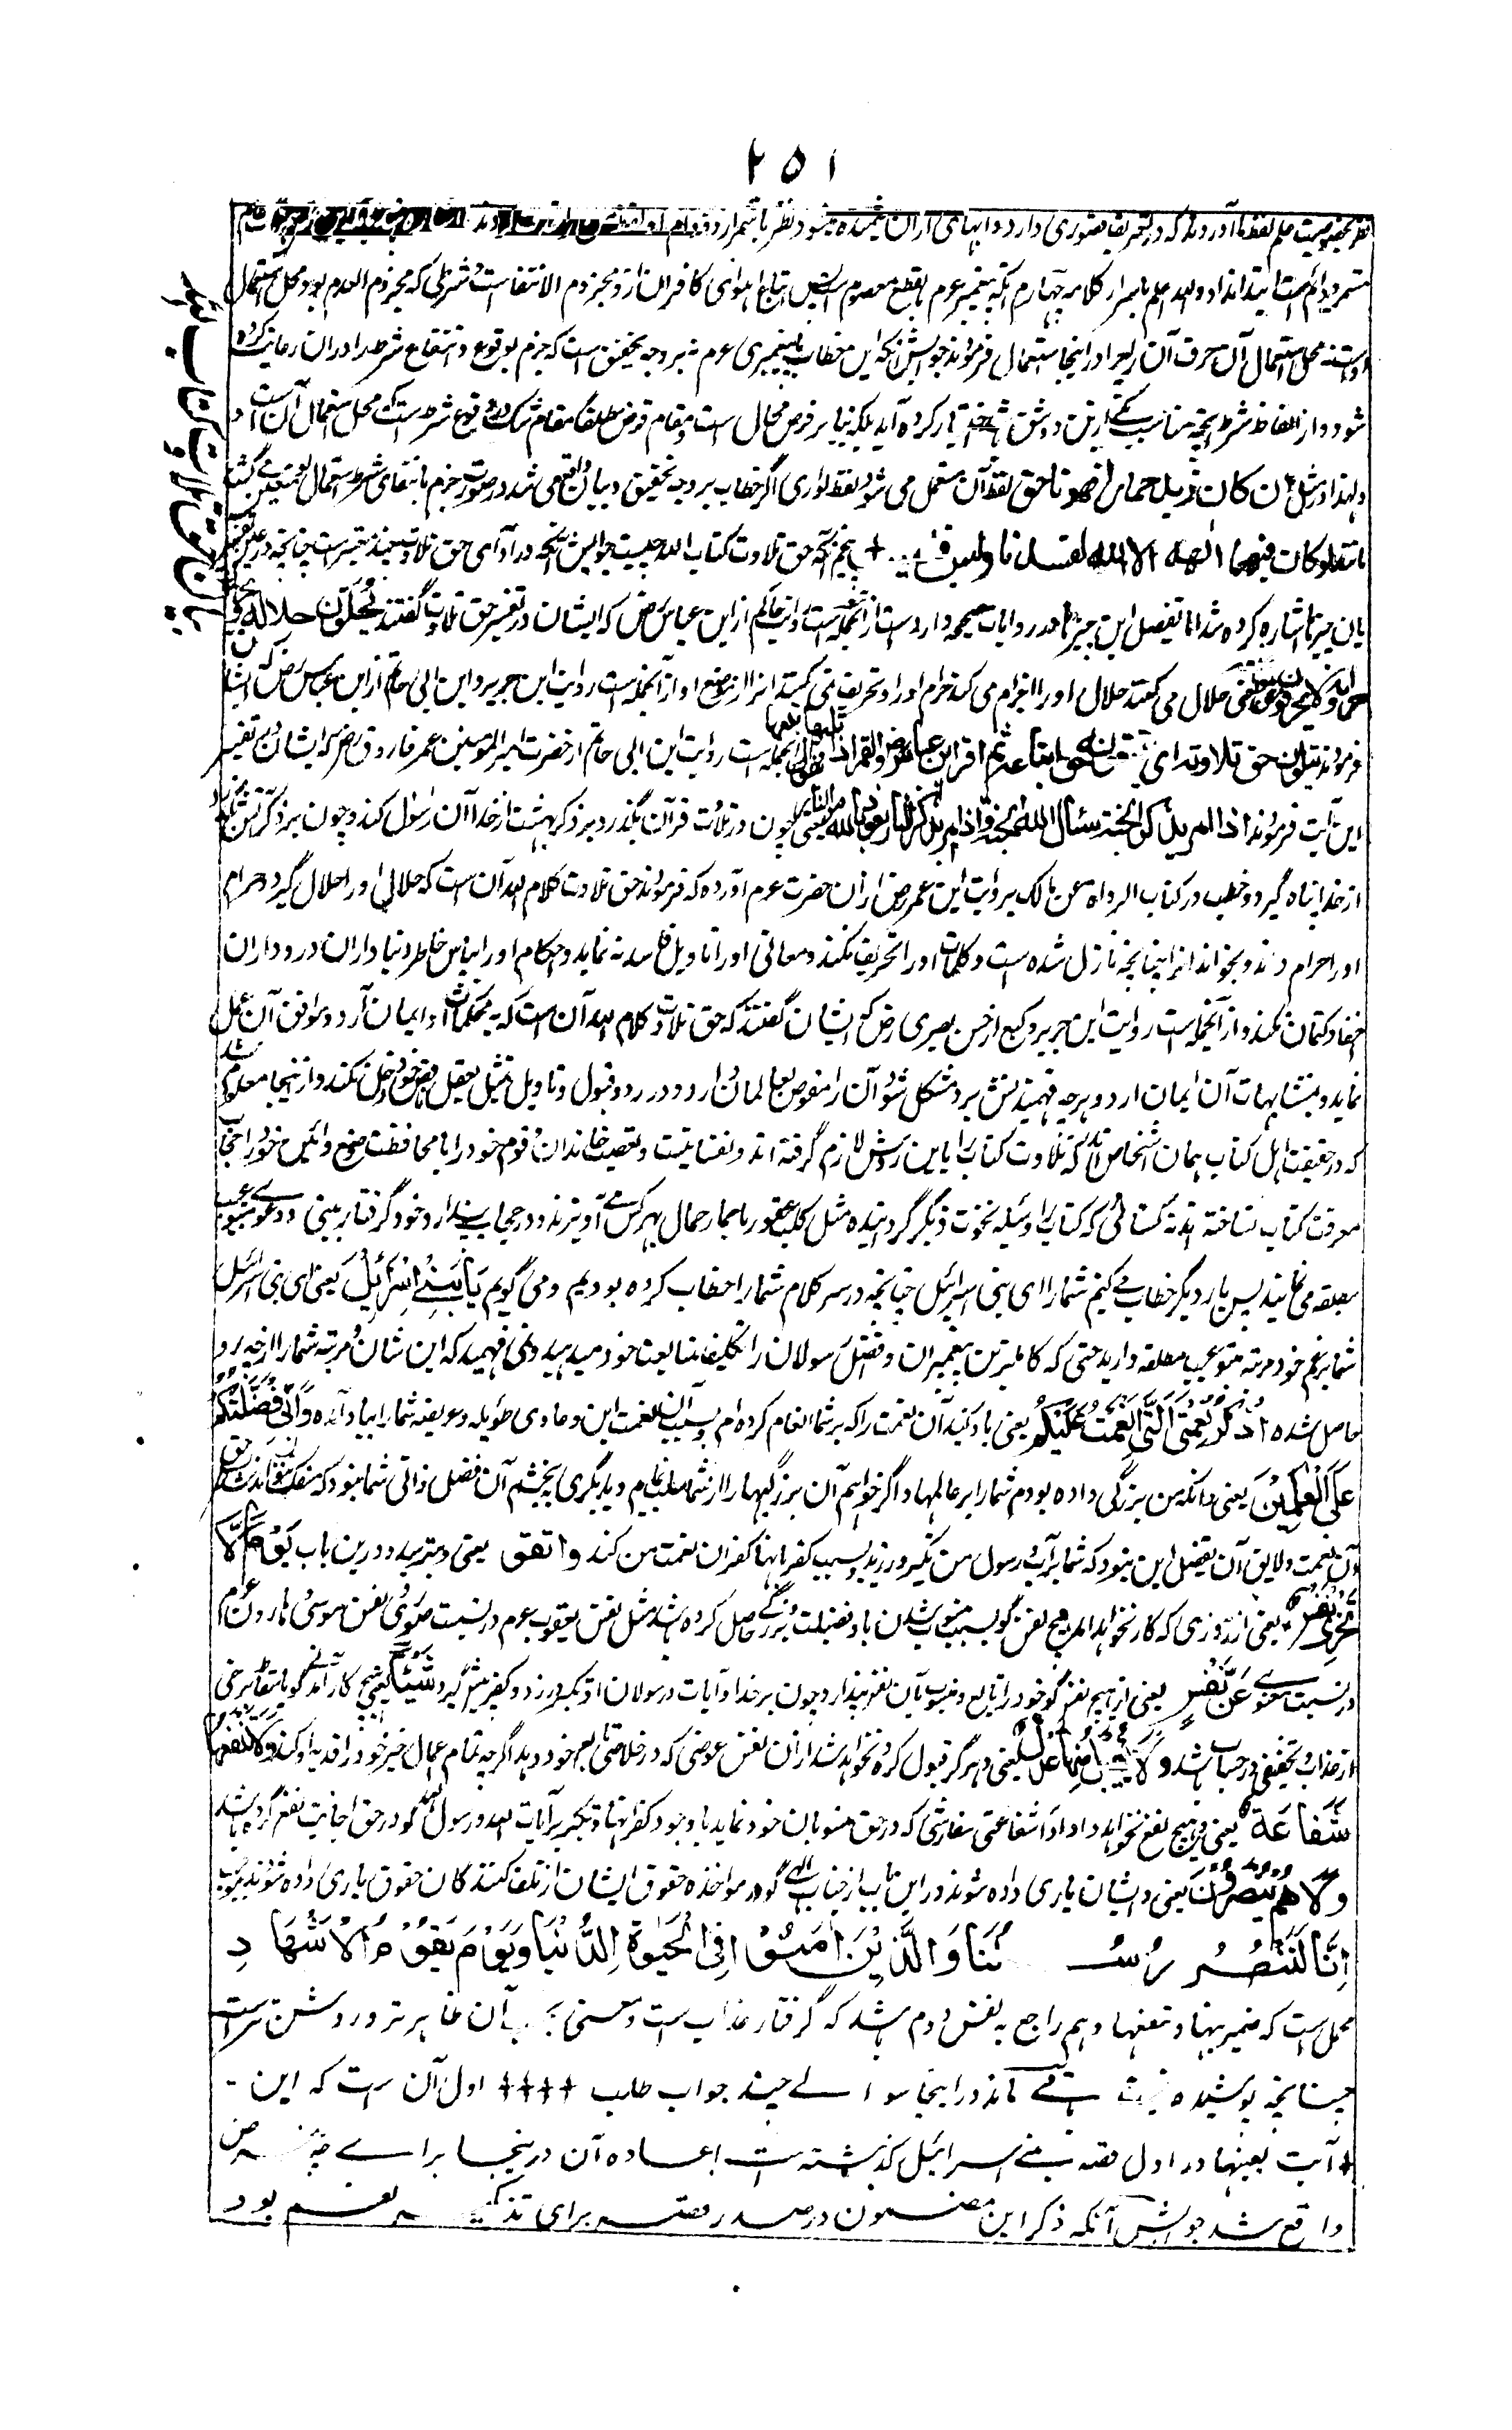 ۲۵۱
مستمر و دائم است ابتدا ندارد و بعد علم باسرار کلامه چهارم آنکه پیغمبر عوم بالقطع معصوم است پس اتباع اهوای کافران از و مجزوم الانتفا است و شرطی که مجزوم العدم بود محل استعمال
او است نه محل استعمال آن حرف آن را چرا در اینجا استعمال فرمودند جوابش آنکه این خطاب با پیغمبری عوم نه بر وجه تحقیق است که جزم بوقوع و انتفاع شرط را در ان رعایت کرده
شود و از الفاظ شرط آنچه مناسب یکی ازین دو شق باشد اختیار کرده آید بلکه بنا بر فرض محال است و مقام فرض مطلقا مقام شک در وقوع شرط است که محل استعمال آن است
ولهذا در مثل ان کان زید حمارا فهو ناهق لفظ آن مستعمل می شود لفظ لو آری اگر خطاب بر وجه تحقیق و بیان واقع می شد در صورت جزم بانتفای شرط استعمال لو متعین می گشت
مانند لو کان فیهما الهة الا الله لفسدتا و لمعرفة + پنجم آنکه حق تلاوت کتاب الله چیست جوابش آنکه در ادای حق تلاوت چند چیز است چنانچه در عین تفسیر
بان چیزها اشاره کرده شد اما تفصیل این چیزها در روایات صحیحه وارد است از آنجمله است روایت حاکم از ابن عباس رض که ایشان در تفسیر حق تلاوت گفتند یحلون حلاله
حرامه و لا یحرفونه عن مواضعه یعنی حلال می کنند حلال او را و حرام می کنند حرام او را و تحریف نمی کنند آنرا از مواضع او و از آنجمله است روایت ابن جریر و ابن ابی حاتم از ابن عباس رض که ایشان
فرمودند یتلونه حق تلاوته ای یتبعونه حق اتباعه ثم اقرا ابن عباس رض والقمر اذا تلیها و از آنجمله است روایت ابن ابی حاتم از حضرت امیر المومنین عمر فاروق رض که ایشان در تفسیر
این آیت فرمودند اذا مر بذکر الجنة سئال الله الجنة و اذا مر بذکر النار تعوذ بالله من النار یعنی چون در تلاوت قرآن بگذرد بر ذکر بهشت از خدا آن را سوال کند و چون بر ذکر آتش بگذرد
از خدا پناه گیرد و خطیب در کتاب الرواة عن مالک بروایت ابن عمر رض از ان حضرت عوم آورده که فرمودند حق تلاوت کلام الله آن است که حلال او را حلال گیرد و حرام
او را حرام داند و بخواند آنرا چنانچه نازل شده است و کلمات او را تحریف نکند و معانی او را تاویل فاسد نه نماید و احکام او را بپاس خاطر دنیاداران و روداران
اخفا و کتمان نکند و از آنجمله است روایت ابن جریر و کیع از حسن بصری رض که ایشان گفتند که حق تلاوت کلام الله آن است که به محکمات او ایمان آرد و موافق آن عمل
نماید و بمتشابهات آن ایمان آرد و هرچه فهمیدنش بر و مشکل شود آن را مفوض بعالمان دارد و در رد و قبول و تاویل و تمثیل بعقل ناقص خود دخل نکند و از ینجا معلوم شد
که در حقیقت اهل کتاب همان اشخاص اند که تلاوت کتاب را باین روش لازم گرفته اند و نفسانیت و تعصب خاندان و قوم خود را با محافظت وضع و آئین خود را حجاب
معرفت کتاب نساخته اند نه کسانی که کتاب را وسیله نخوت دیگر گردانیده مثل کلب عقور یا حمار حمال بهر کس می آویزند و در حجاب پندار و خود گرفتار ببینی و دعوی متبوعیت
مطلقه می نمایند پس بار دیگر خطاب می کنیم شما را ای بنی اسرائیل چنانچه در سر کلام شما را خطاب کرده بودیم و می گویم یَا بَنِیْ اِسْرَائِیْلَ یعنی ای بنی اسرائیل
شما بزعم خود مرتبه متبوعیت مطلقه دارید حتی که کاملترین پیغمبران و افضل رسولان را تکلیف متابعت خود میدهید و نمی فهمید که این شان و مرتبه شما را از چه رو
حاصل شده اُذْکُرُوْا نِعْمَتِیَ الَّتِیْ اَنْعَمْتُ عَلَیْکُمْ یعنی یاد کنید آن نعمت را که بر شما انعام کرده ام و بسبب آن نعمت این دعاوی طویله و عریضه شما را بیاد آمده وَاَنِّیْ فَضَّلْتُکُمْ
عَلَی الْعٰلَمِیْنَ یعنی و آنکه من بزرگی داده بودم شما را بر عالمها و اگر خواهم آن بزرگیها را از شما سلب نمایم و بدیگری بخشم آن فضل ذاتی شما نبود که منفک نتواند شد و حق
آن نعمت و لایق آن تفضل این نبود که شما بر آیات و رسول من تکبر ورزید و بسبب کفر بانها کفران نعمت من کنید واتقوا یعنی و بترسید درین باب یَوْمًا لَّا
تَجْزِیْ نَفْسٌ یعنی از روزی که کار نخواهد آمد هیچ نفس گو بسبب منسوب شدن باو فضیلت و بزرگی حاصل کرده باشد مثل نفس یعقوب عوم در نسبت صوری و نفس موسی و هارون عوم
در نسبت معنوی عَنْ نَّفْسٍ یعنی از هیچ نفس گو خود را تابع و منسوب بآن نفس پندارد چون بر خدا و آیات و رسولان او تکبر ورزد و کفر پیش گیرد شَیْئًا یعنی هیچ کار آمدنی گو باسقاط برخی
از عذاب و تخفیف در حساب باشد وَلَا یُقْبَلُ مِنْهَا عَدْلٌ یعنی و هرگز قبول کرده نخواهد شد از ان نفس عوضی که در خلاصی تابع خود دهد اگرچه تمام اعمال خیر خود را فدیه او کند وَلَا تَنْفَعُهَا
شَفَاعَةٌ یعنی و هیچ نفع نخواهد داد او را شفاعتی سفارشی که در حق منسوبان خود نماید با وجود کفر آنها و تکبر بر آیات الله و رسول الله گو در حق اجانب نفع کرده باشد
وَلَا هُمْ یُنْصَرُوْنَ یعنی و نه ایشان یاری داده شوند در این باب از جناب الهی گو در مواخذه حقوق ایشان از تلف کنندگان حقوق یاری داده شوند بموجب
اِنَّا لَنَنْصُرُ رُسُلَنَا وَالَّذِیْنَ اٰمَنُوْا فِی الْحَیٰوةِ الدُّنْیَا وَیَوْمَ یَقُوْمُ الْاَشْهَادِ
محتمل است که ضمیر منها و تنفعها و هم راجع به نفس دوم باشد که گرفتار عذاب است و معنی آن ظاهرتر و روشن تر است
چنانچه پوشیده نیست باقی ماند در اینجا سوالی چند جواب طلب ++++ اول آن است که این
+ آیت بعینها در اول قصه بنی اسرائیل گذشته است اعاده آن در ینجا برای چه غرض
واقع شد جوابش آنکه ذکر این مضمون در صدر قصه برای تذکیر نعم بود
بیان حق تلاوت کتاب الله